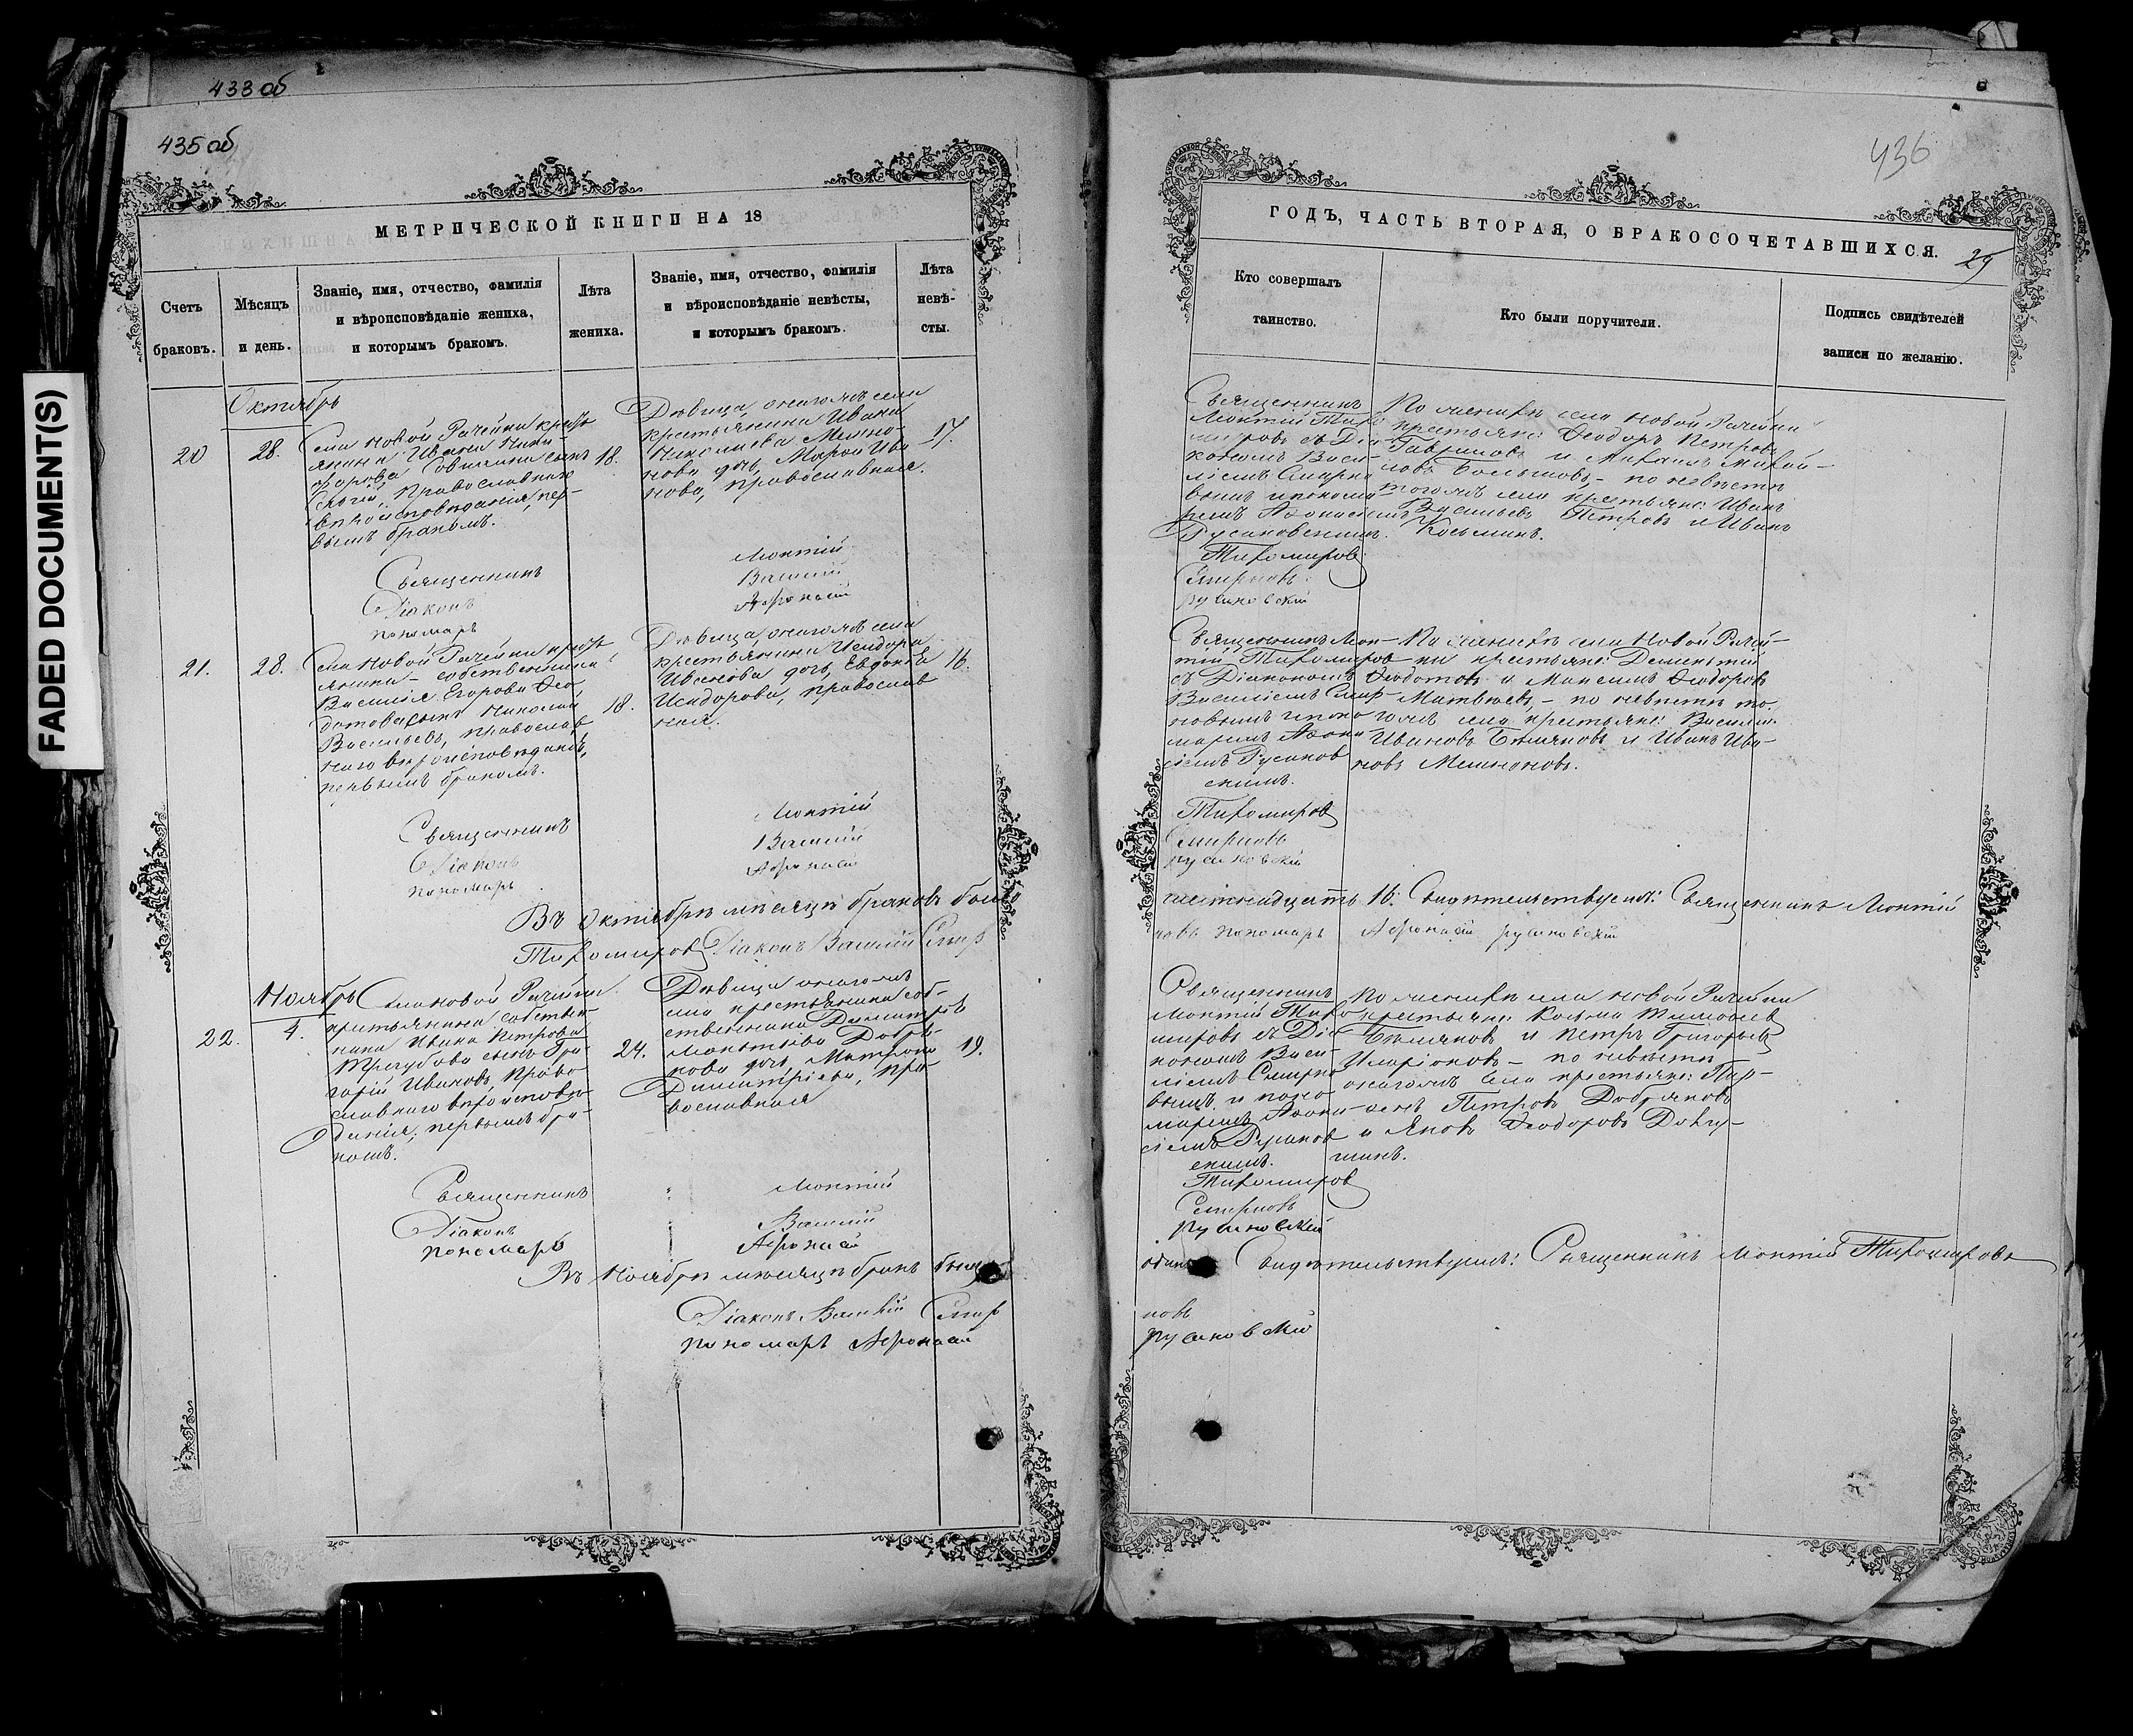 433 об
435 об
МЕТРИЧЕСКОЙ КНИГИ НА 18
Счетъ браковъ.
Мѣсяцъ и день.
Званіе, имя, отчество, фамилія и вѣроисповѣданіе жениха, и которымъ бракомъ.
Лѣта жениха.
Званіе, имя, отчество, фамилія и вѣроисповѣданіе невѣсты, и которымъ бракомъ.
Лѣта невѣ-
сты.
Октябрь
20
28.
Села Новой Рачейки крест
янина Ивана Ники-
форова сынъ
православнаго
вѣроисповѣданія, пер-
вымъ бракомъ.
18.
Дѣвица, онагожъ села
крестьянина Ивана
Николаева
нова дочь, Ива
нова, православная.
17.
Священникъ Моктій
Діаконъ Василій
пономарь Афонасій
21.
28.
Села Новой Рачейки крест
янина-собственника
Василія Егорова Ѳео
дотова сынъ Николай
Васильевъ, православ
наго вѣроисповѣданія,
первымъ бракомъ.
18.
Дѣвица, онагожъ села
крестьянина Исидора
Иванова дочь, Евдокія
Исидорова, православ
ная.
16.
Священникъ Моктій
Діаконъ Василій
пономарь Афонасій
Въ Октябрѣ мѣсяцѣ браковъ было
Тихомировъ Діаконъ Василій Смир
Ноябрь
22.
4.
Села Новой Рачейки
крестьянина собствен
ника Ивана Петрова
Трегубова сынъ Гри
горій Ивановъ, право
славнаго вѣроисповѣ
данія, первымъ бра-
комъ.
24.
Дѣвица онагожъ
села крестьянина соб-
ственника Димитрія
Добря-
кова дочь, Матрона
Димитріева, пра-
вославная
19.
Священникъ Моктій
Діаконъ Василій
пономарь Афонасій
Въ Ноябрѣ мѣсяцѣ бракъ былъ
Діаконъ Василій Смир
пономарь Афонасій
436
ГОДЪ, ЧАСТЬ ВТОРАЯ, О БРАКОСОЧЕТАВШИХСЯ.
29
Кто совершалъ таинство.
Кто были поручители.
Подпись свидѣтелей записи по желанію.
Священникъ
Моктій Тихо
мировъ съ Діа
кономъ Васи-
ліемъ Смирно
вымъ и понома
ремъ Афонасіемъ
Русановскимъ.
Тихомировъ
Смирновъ
Русановскій
По женихѣ села Новой Рачейки
крестьяне: Ѳеодоръ Петровъ
Гавриловъ и Михаилъ Михай-
ловъ Большовъ, - по невѣстѣ
тогожъ села крестьяне: Иванъ
Васильевъ Петровъ и Иванъ
Косьминъ.
Священникъ Мок-
тій Тихомировъ
съ Діакономъ
Василіемъ Смир
новымъ и поно
маремъ Афона
сіемъ Русанов
скимъ.
Тихомировъ
Смирновъ
Русановскій
По женихѣ села Новой Рачей-
ки крестьяне: Дементій
Ѳеодотовъ и Максимъ Ѳеодоровъ
Матвѣевъ, - по невѣстѣ то-
гожъ села крестьяне: Василій
Ивановъ Бѣляковъ и Иванъ Ива-
новъ
шестнадцать 16. Свидѣтельствуемъ: Священникъ Моктій
новъ пономарь Афонасій Русановскій
Священникъ
Моктій Тихо
мировъ съ Діа
кономъ Васи-
ліемъ Смирно
вымъ и поно
маремъ Афона-
сіемъ Русанов
скимъ.
Тихомировъ
Смирновъ
Русановскій
По женихѣ села Новой Рачейки
крестьяне: Косьма Тимофеевъ
Бѣляковъ и Петръ Григорьевъ
Иларіоновъ - по невѣстѣ
онагожъ села крестьяне: Пар-
фенъ Петровъ Добряковъ
и Яковъ Ѳеодоровъ Довгу-
шинъ.
одинъ Свидѣтельствуемъ: Священникъ Моктій Тихомировъ
новъ
Русановскій
FADED DOCUMENT(S)